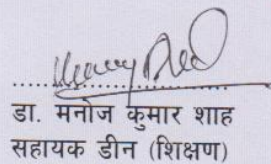 डा. मनोज कुमार शाह
सहायक डीन (शिक्षण)